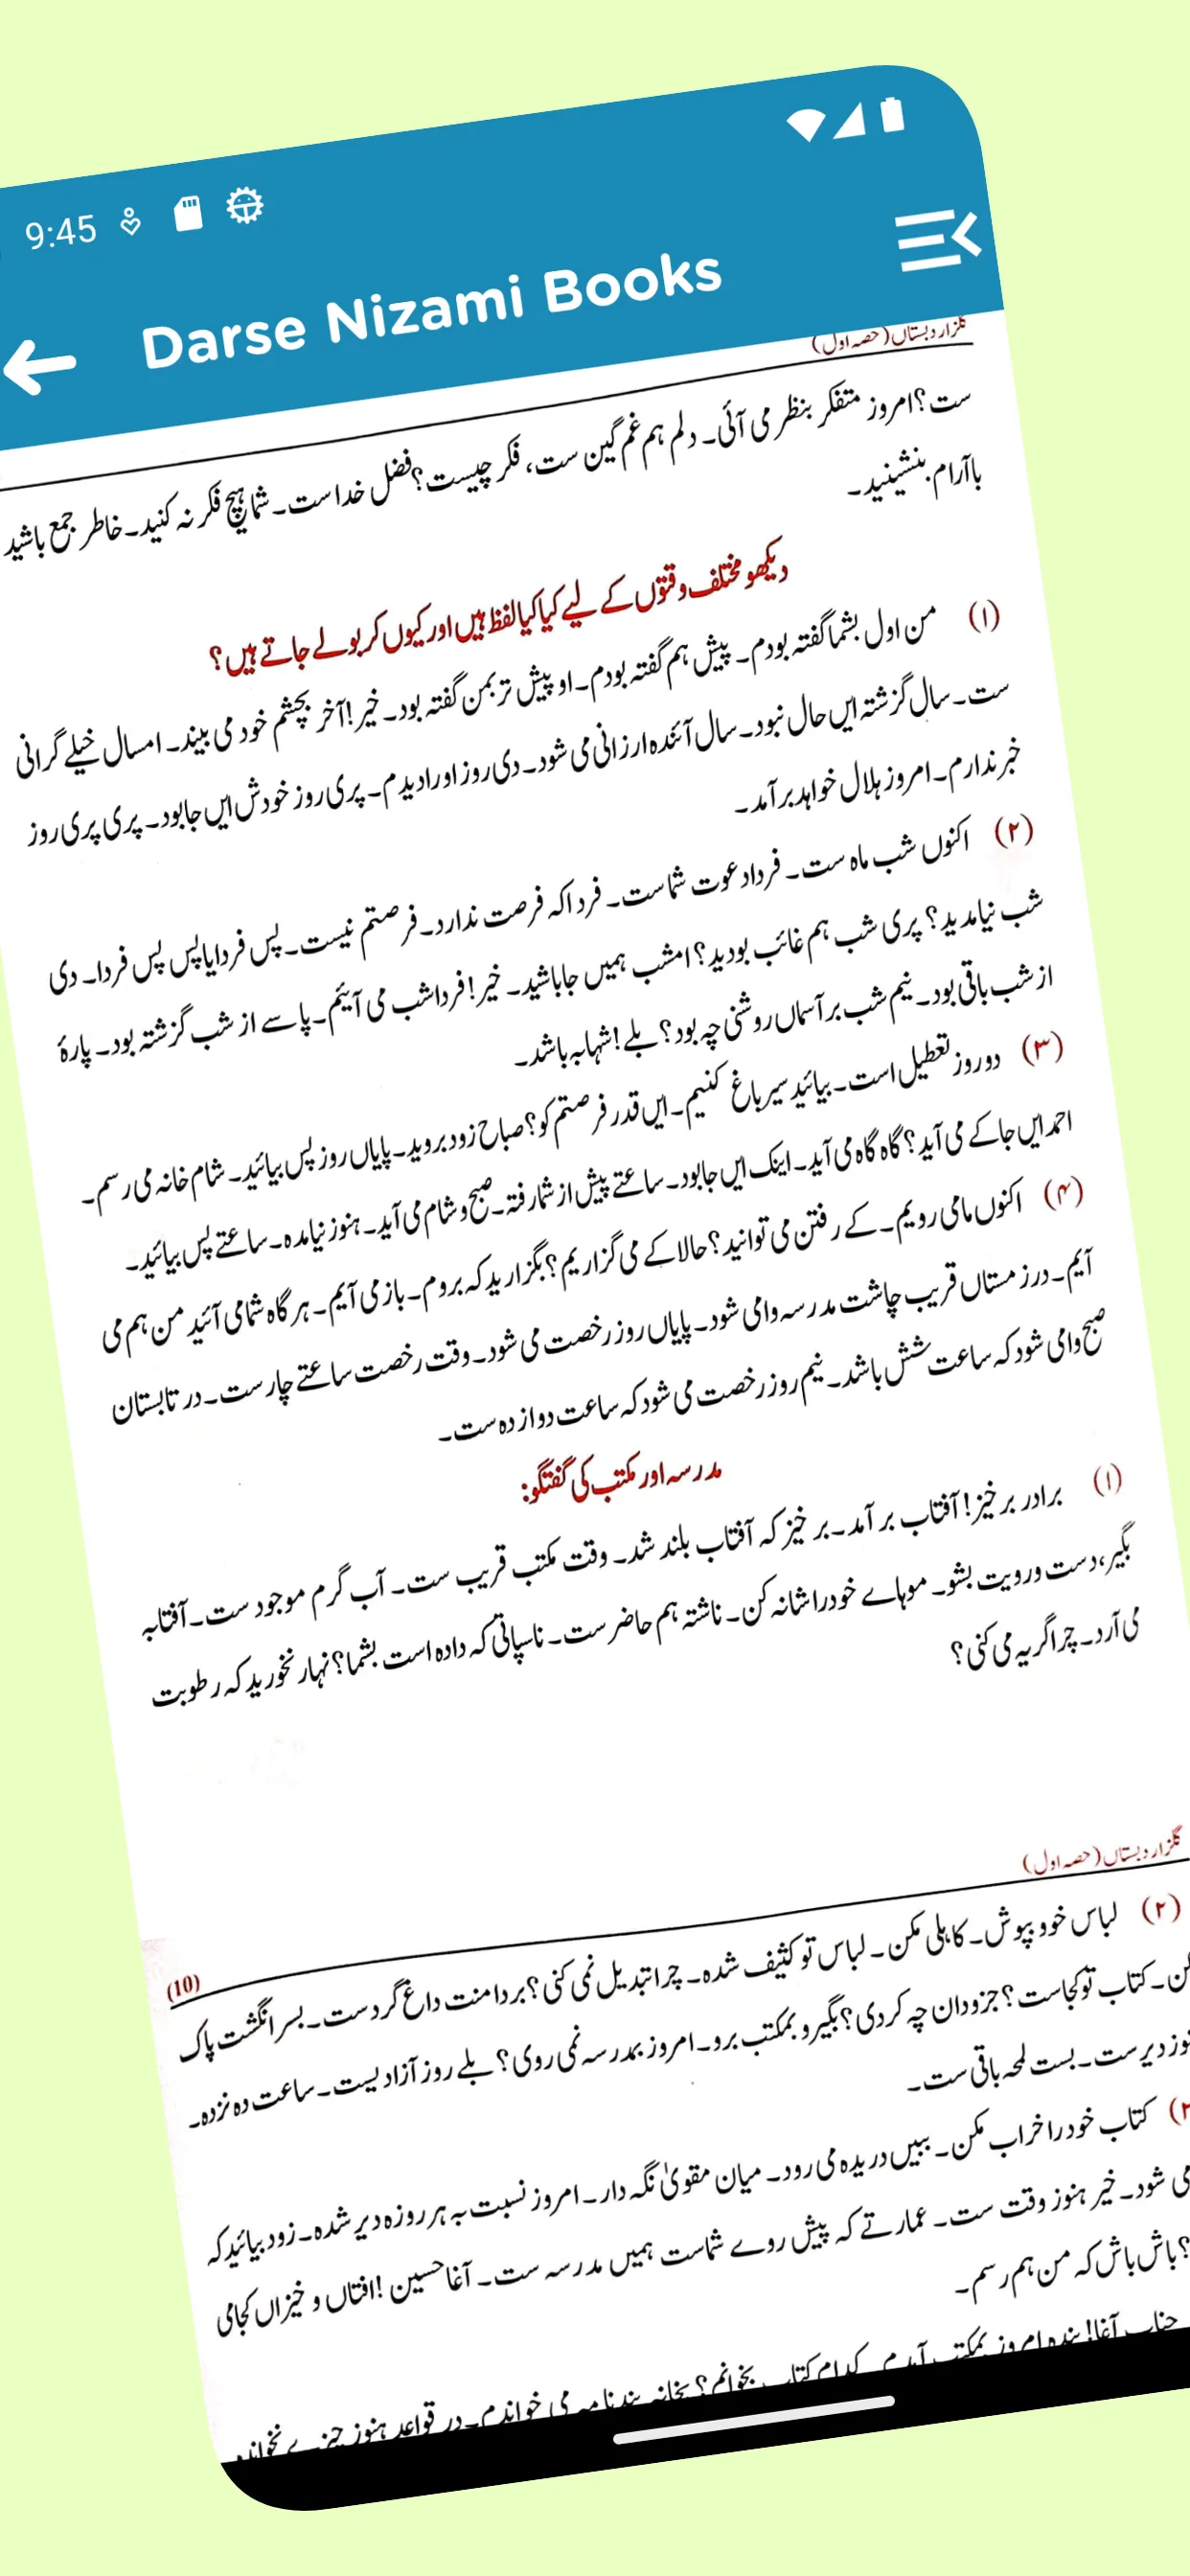 9:45
Darse Nizami Books
گلزار دبستاں (حصہ اول)
ست؟ امروز متفکر بنظر می آئی۔ دلم ہم غم گین ست، فکر چیست؟ فضل خدا ست۔ شما ہیچ فکر نہ کنید۔ خاطر جمع باشید
باآرام بنشینید۔
دیکھو مختلف وقتوں کے لیے کیا کیا لفظ ہیں اور کیوں کر بولے جاتے ہیں؟
(۱) من اول بشما گفتہ بودم۔ پیش ہم گفتہ بودم۔ او پیش تر بمن گفتہ بود۔ خیر! آخر بچشم خود می بیند۔ امسال خیلے گرانی
ست۔ سال گزشتہ ایں حال نبود۔ سال آئندہ ارزانی می شود۔ دی روز اورا دیدم۔ پری روز خودش ایں جا بود۔ پری پری روز
خبر ندارم۔ امروز ہلال خواہد برآمد۔
(۲) اکنوں شب ماہ ست۔ فردا دعوت شماست۔ فردا کہ فرصت ندارد۔ فرصتم نیست۔ پس فردا یا پس پس فردا۔ دی
شب نیامدید؟ پری شب ہم غائب بودید؟ امشب ہمیں جا باشید۔ خیر! فردا شب می آئیم۔ پاسے از شب گزشتہ بود۔ پارۂ
از شب باقی بود۔ نیم شب بر آسماں روشنی چہ بود؟ بلے! شہابہ باشد۔
(۳) دو روز تعطیل است۔ بیائید سیر باغ کنیم۔ ایں قدر فرصتم کو؟ صباح زود بروید۔ پایاں روز پس بیائید۔ شام خانہ می رسم۔
احمد ایں جا کے می آید؟ گاہ گاہ می آید۔ اینک ایں جا بود۔ ساعتے پیش از شما رفتہ۔ صبح و شام می آید۔ ہنوز نیامدہ۔ ساعتے پس بیائید۔
(۴) اکنوں ما می رویم۔ کے رفتن می توانید؟ حالا کے می گزاریم؟ بگزارید کہ بروم۔ باز می آیم۔ ہر گاہ شما می آئید من ہم می
آیم۔ در زمستاں قریب چاشت مدرسہ وا می شود۔ پایاں روز رخصت می شود۔ وقت رخصت ساعتے چار ست۔ در تابستان
صبح وا می شود کہ ساعت شش باشد۔ نیم روز رخصت می شود کہ ساعت دوازدہ ست۔
مدرسہ اور مکتب کی گفتگو:
(۱) برادر بر خیز! آفتاب بر آمد۔ بر خیز کہ آفتاب بلند شد۔ وقت مکتب قریب ست۔ آب گرم موجود ست۔ آفتابہ
بگیر، دست و رویت بشو۔ موہاے خود را شانہ کن۔ ناشتہ ہم حاضر ست۔ ناسپاتی کہ دادہ است بشما؟ نہار نخورید کہ رطوبت
می آرد۔ چرا گریہ می کنی؟
گلزار دبستاں (حصہ اول)
(10)
(۲) لباس خود بپوش۔ کاہلی مکن۔ لباس تو کثیف شدہ۔ چرا تبدیل نمی کنی؟ بر دامنت داغ گرد ست۔ بسر انگشت پاک
کن۔ کتاب تو کجاست؟ جزودان چہ کردی؟ بگیر و بمکتب برو۔ امروز بمدرسہ نمی روی؟ بلے روز آزادیست۔ ساعت دہ نزدہ۔
دیر ست۔ بست لمحہ باقی ست۔
کتاب خود را خراب مکن۔ ببیں دریدہ می رود۔ میان مقویٰ نگہ دار۔ امروز نسبت بہ ہر روزہ دیر شدہ۔ زود بیائید کہ
می شود۔ خیر ہنوز وقت ست۔ عمارتے کہ پیش روے شماست ہمیں مدرسہ ست۔ آغا حسین! افتاں و خیزاں کجا می
؟ باش باش کہ من ہم رسم۔
جناب آغا! بندہ امروز بمکتب آمدم۔ کدام کتاب بخوانم؟ بخانہ پندنامہ می خواندم۔ در قواعد ہنوز چیزے نخواندہ